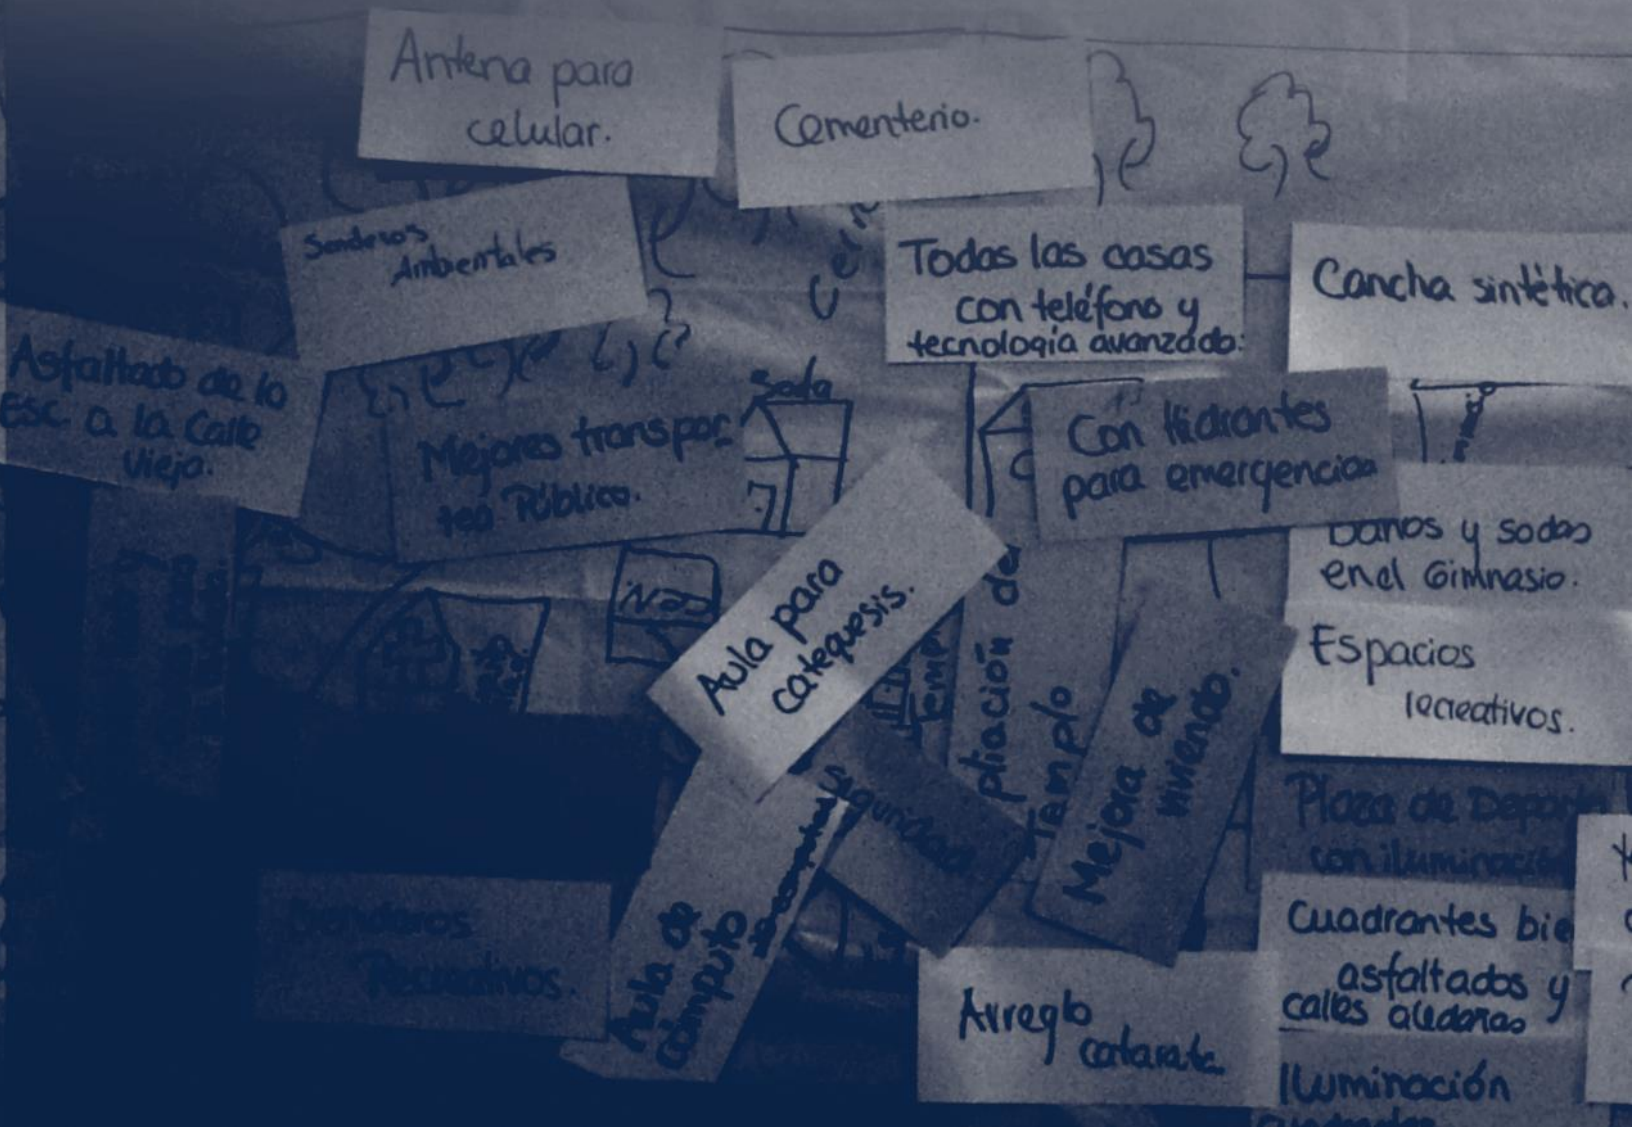 Antena para
celular.
Cementerio.
Senderos
Ambientales
Todas las casas
con teléfono y
tecnología avanzado.
Cancha sintética.
Asfaltado de la
Esc. a la Calle
Vieja.
Soda
Mejores transpor
tes Público.
Con Hidrantes
para emergencia
Baños y sodas
en el Gimnasio.
CEN
Aula para
catequesis.
pliación del
Templo
Mejora de
vivienda.
Espacios
recreativos.
Seguridad
Plaza de Deporte
con iluminación
Senderos
Recreativos.
Aula de
cómputo
Cuadrantes bie
asfaltados y
calles aledañas
Arreglo
catarata
Iluminación